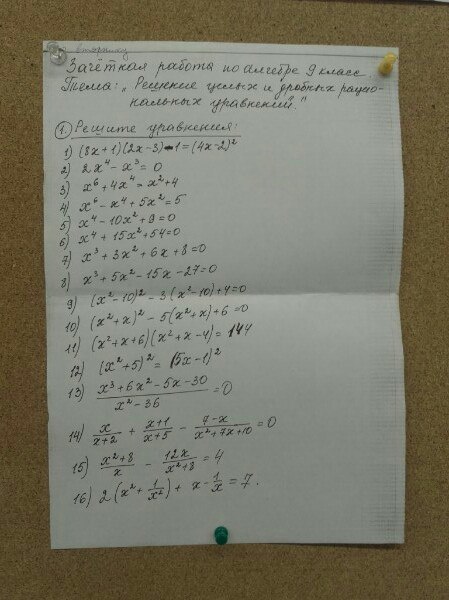 вторнику
Зачётная работа по алгебре 9 класс
Тема: „Решение целых и дробных рацио-
нальных уравнений."
1. Решите уравнения:
1) (8x+1)(2x-3)-1=(4x-2)²
2) 2x⁴-x³=0
3) x⁶+4x⁴=x²+4
4) x⁶-x⁴+5x²=5
5) x⁴-10x²+9=0
6) x⁴+15x²+54=0
7) x³+3x²+6x+8=0
8) x³+5x²-15x-27=0
9) (x²-10)²-3(x²-10)+4=0
10) (x²+x)²-5(x²+x)+6=0
11) (x²+x+6)(x²+x-4)=144
12) (x²+5)²=(5x-1)²
13) (x³+6x²-5x-30)/(x²-36)=0
14) x/(x+2)+(x+1)/(x+5)-(7-x)/(x²+7x+10)=0
15) (x²+8)/x-12x/(x²+8)=4
16) 2(x²+1/x²)+x-1/x=7.